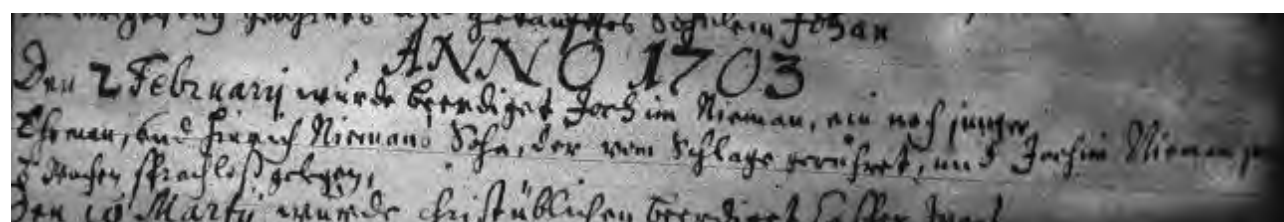 getaufftes Söhnlein Johan
ANNO 1703
Den 2 Februarij wurde beerdiget Jochim Nieman, ein noch junger
Ehman, und Hinrich Niemans Sohn, der vom Schlage gerühret, und Jochim Nieman
3 Wochen sprachloß gelegen,
Den 10 Martij wurde christüblichen beerdiget